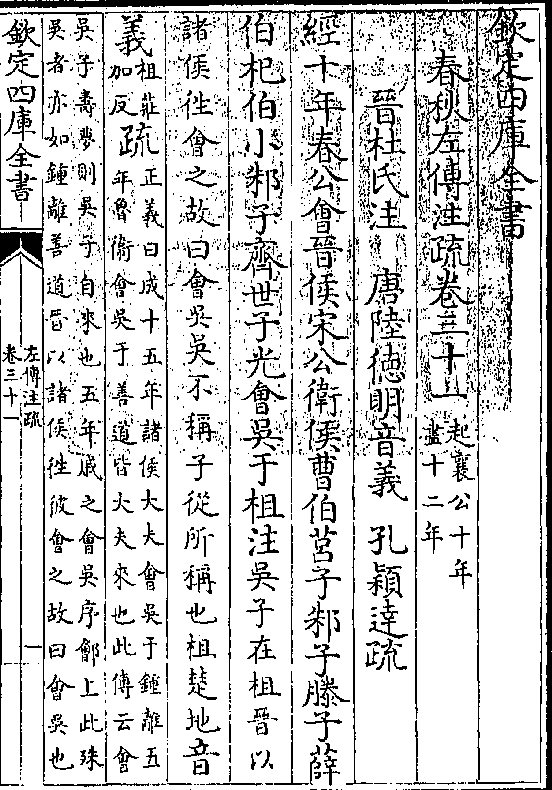 欽定四庫全書
春秋左傳注疏卷三十一
起襄公十年
盡十二年
晉杜氏注 唐陸德明音義 孔穎達疏
經十年春公會晉侯宋公衛侯曹伯莒子邾子滕子薛
伯杞伯小邾子齊世子光會吳于柤注吳子在柤晉以
諸侯往會之故曰會吳吳不稱子從所稱也柤楚地音
義柤莊
加反疏正義曰成十五年諸侯大夫會吳于鍾離五
年魯衛會吳于善道皆大夫來也此傳云會
吳子壽夢則吳子自來也五年戚之會吳序鄫上此殊
吳者亦如鍾離善道晉以諸侯往彼會之故曰會吳也
欽定四庫全書
左傳注疏
卷三十一
一